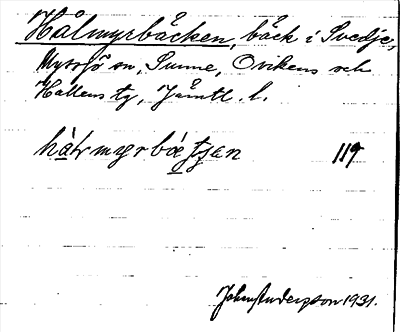 Hålmyrbäcken, bäck i Svedje,
Myssjö sn, Sunne, Ovikens och
Hallens tg, Jämtl. l.
håḷṃyrbæt̯t̯jen 119
John Andersson 1931.